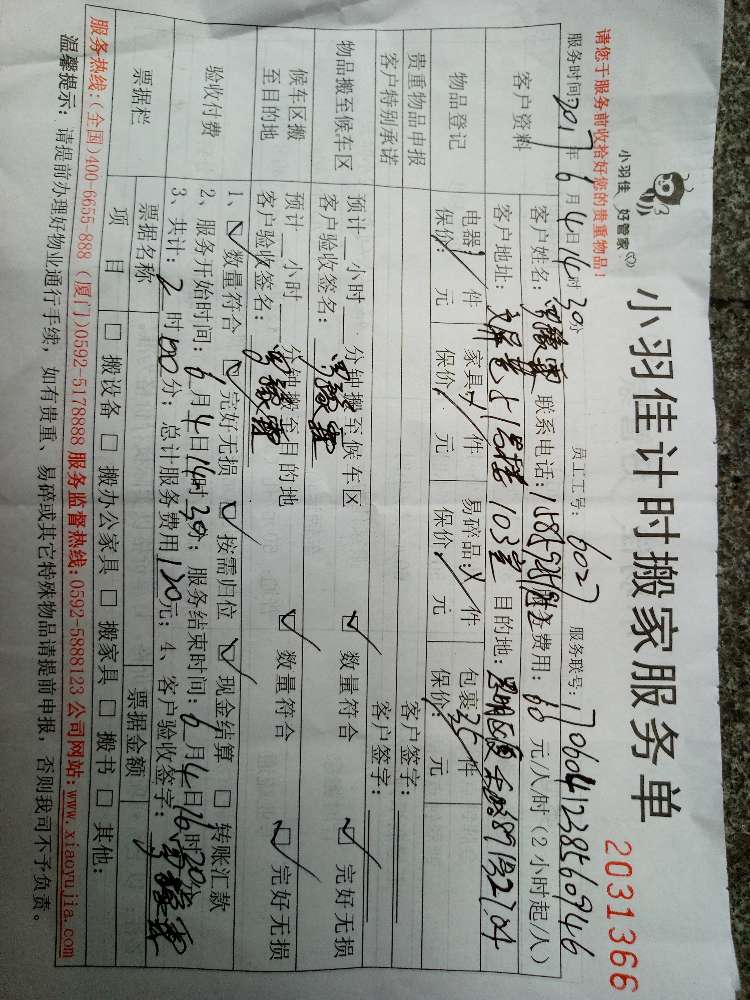 小羽佳 好管家
小羽佳计时搬家服务单
2031366
请您于服务前收拾好您的贵重物品！
员工工号：6027 服务联号：1706041238560946
服务时间：2017年6月4日14时30分
客户资料
客户姓名： 联系电话： 费用：60元/人/时（2小时起/人）
客户地址：51号楼103室 目的地：
物品登记
电器：1件 家具：件 易碎品：件 包裹：件
保价： 元 保价： 元 保价： 元 保价： 元
贵重物品申报 客户签字：
客户特别承诺 客户签字：
物品搬至候车区
预计 小时 分钟搬至候车区 ☑ 数量符合 ☑ 完好无损
客户验收签名：
候车区搬至目的地
预计 小时 分钟搬至目的地 ☑ 数量符合 ☑ 完好无损
客户验收签名：
验收付费
1、☑ 数量符合 ☑ 完好无损 ☑ 按需归位 ☑ 现金结算 □ 转账汇款
2、服务开始时间：6月4日14时30分；服务结束时间：6月4日16时20分
3、共计：2时00分；总计服务费用120元；4、客户验收签字：
票据栏 票据名称 票据金额
项 目 □ 搬设备 □ 搬办公家具 □ 搬家具 □ 搬书 □ 其他：
服务热线：(全国)400-6655-888 (厦门)0592-5178888 服务监督热线：0592-5888123 公司网站：www.xiaoyujia.com
温馨提示：请提前办理好物业通行手续，如有贵重、易碎或其它特殊物品请提前申报，否则我司不予负责。